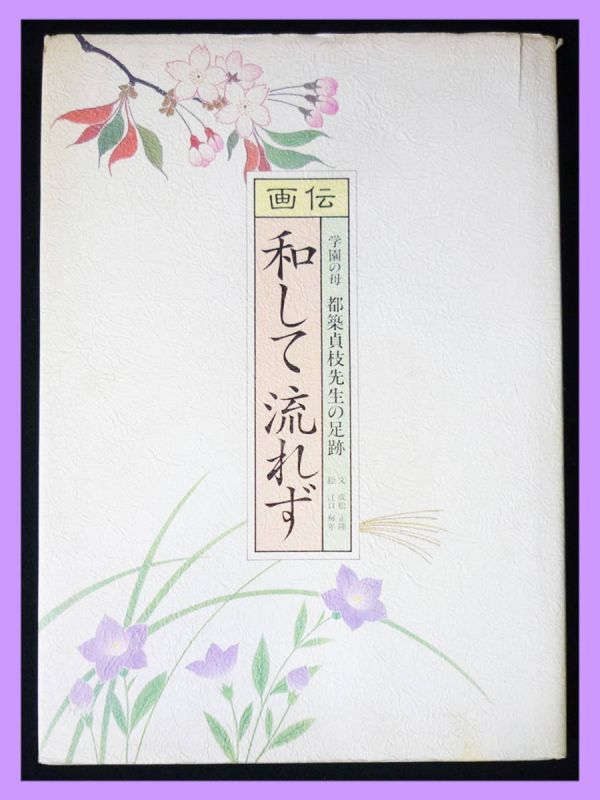 画伝
学園の母 都築貞枝先生の足跡
和して流れず
文 成松 正隆
絵 江口